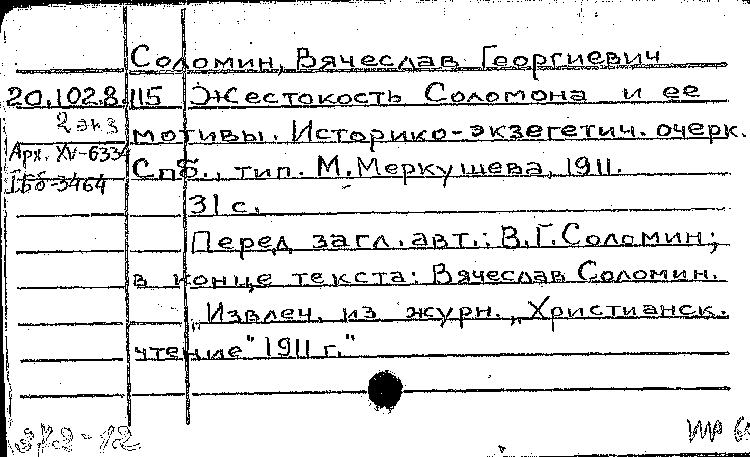 Соломин, Вячеслав Георгиевич
20.102.8.115 Жестокость Соломона и ее
2 экз мотивы. Историко-экзегетич. очерк.
Арх. XV-6334
Спб., тип. М. Меркушева, 1911.
IБб-3464
31 с.
Перед загл. авт.: В.Г. Соломин;
в конце текста: Вячеслав Соломин.
„Извлеч. из журн. „Христианск.
чтение" 1911 г."
37.2-12